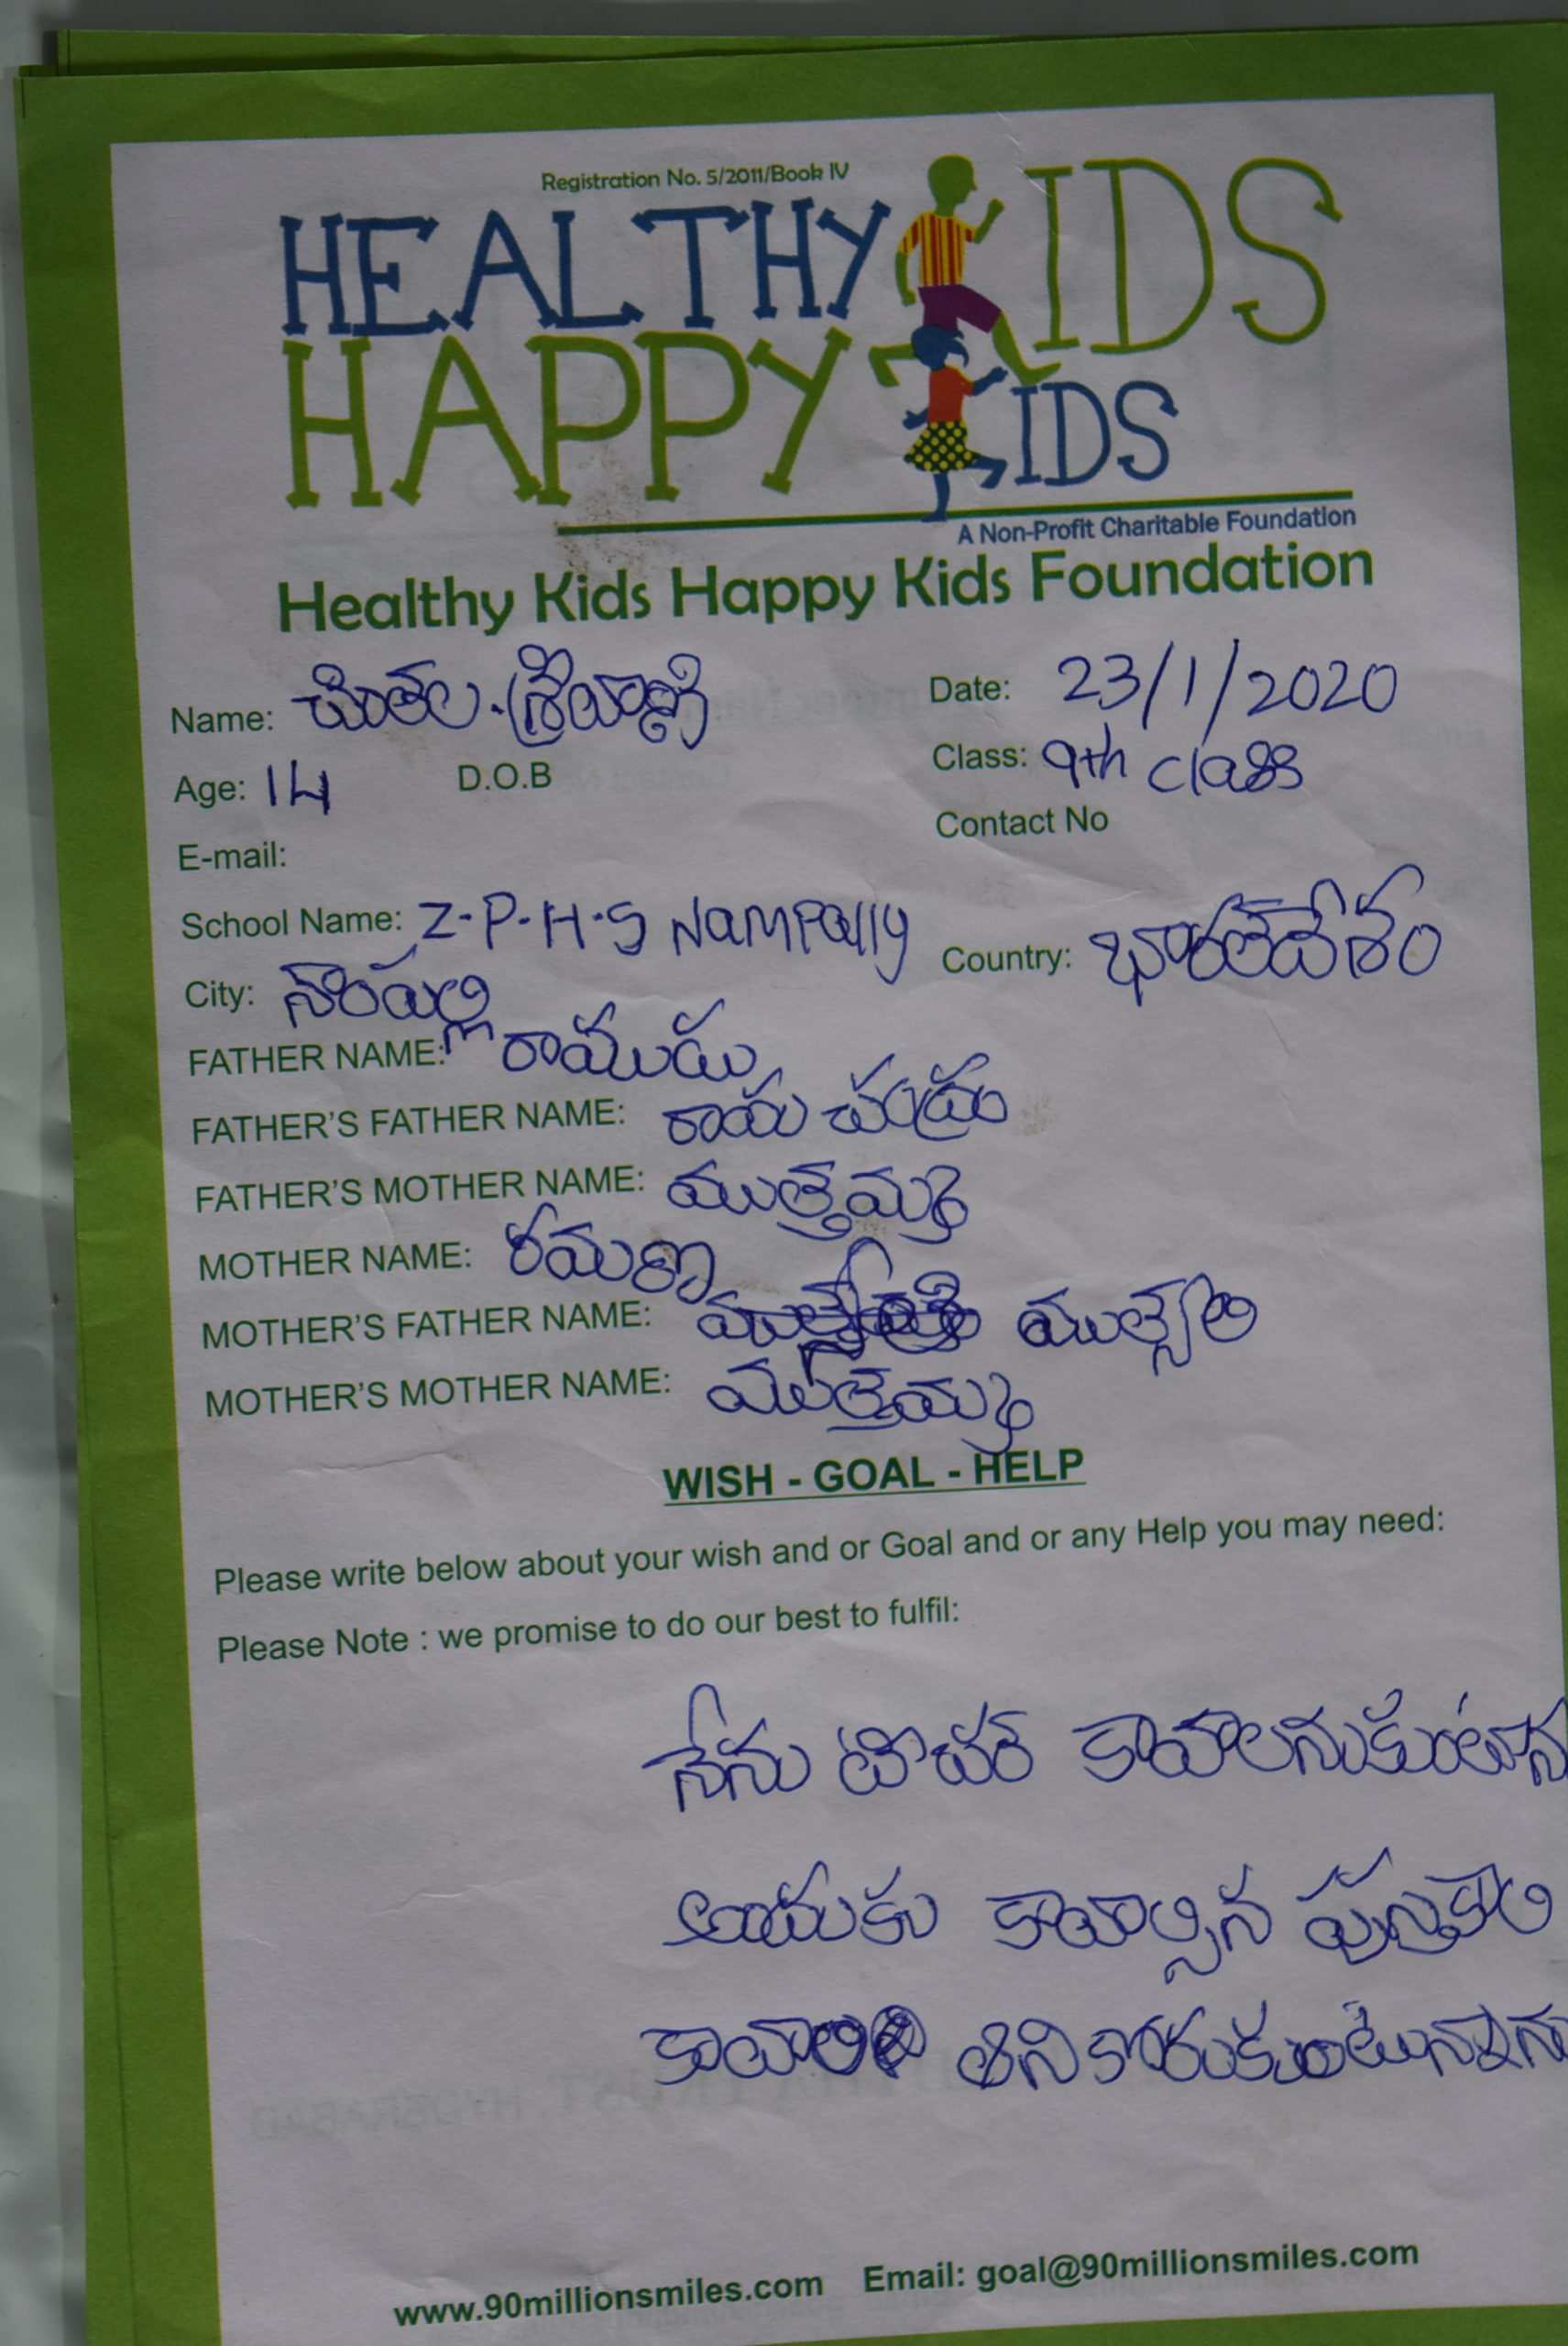 Registration No. 5/2011/Book IV
HEALTHY KIDS
HAPPY KIDS
A Non-Profit Charitable Foundation
Healthy Kids Happy Kids Foundation
Name: చింతల. శ్రీయాణి Date: 23/1/2020
Age: 14 D.O.B Class: 9th class
E-mail: Contact No
School Name: Z.P.H.S Nampally
City: నాంపల్లి Country: భారతదేశం
FATHER NAME: రాముడు
FATHER'S FATHER NAME: రామ చంద్రం
FATHER'S MOTHER NAME: ముత్తమ్మ
MOTHER NAME: రమణ
MOTHER'S FATHER NAME: ముత్యాలి
MOTHER'S MOTHER NAME: ముత్తమ్మ
WISH - GOAL - HELP
Please write below about your wish and or Goal and or any Help you may need:
Please Note : we promise to do our best to fulfil:
నేను టీచర్ కావాలనుకుంటూన
అందుకు కావాల్సిన పుస్తకాలి
కావాలి అని కోరుకుంటున్నాను
www.90millionsmiles.com Email: goal@90millionsmiles.com